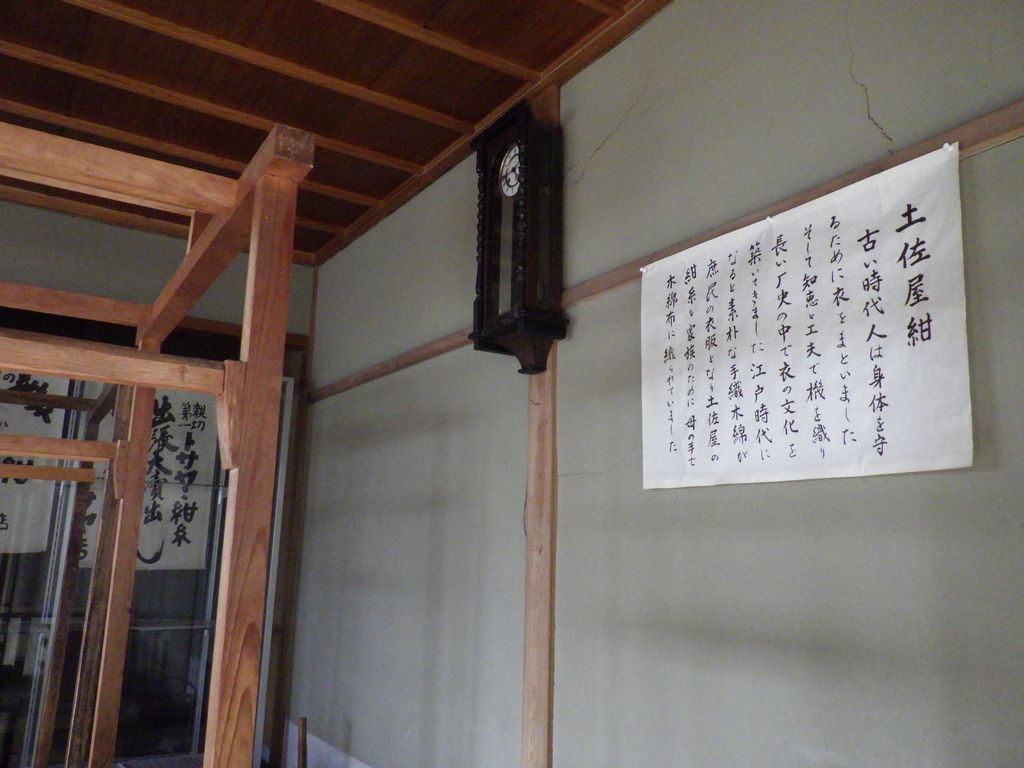 土佐屋紺
古い時代人は身体を守
るために衣をまといました
そして知恵と工夫で機を織り
長い歴史の中で衣の文化を
築いてきました江戸時代に
なると素朴な手織木綿が
庶民の衣服となり土佐屋の
紺糸も家族のために母の手で
木綿布に織られていました
親切
第一
トサヤ紺糸
出張大賣出し